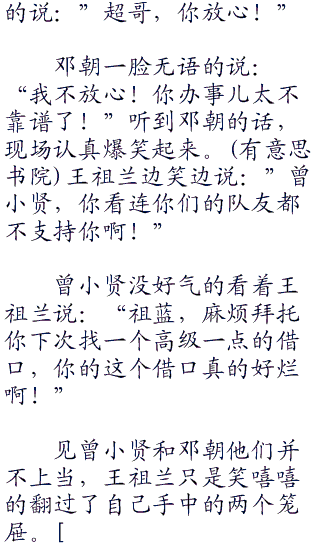 的说：”超哥，你放心！”
邓朝一脸无语的说：
“我不放心！你办事儿太不
靠谱了！”听到邓朝的话，
现场认真爆笑起来。(有意思
书院)王祖兰边笑边说：”曾
小贤，你看连你们的队友都
不支持你啊！”
曾小贤没好气的看着王
祖兰说：“祖蓝，麻烦拜托
你下次找一个高级一点的借
口，你的这个借口真的好烂
啊！”
见曾小贤和邓朝他们并
不上当，王祖兰只是笑嘻嘻
的翻过了自己手中的两个笼
屉。[